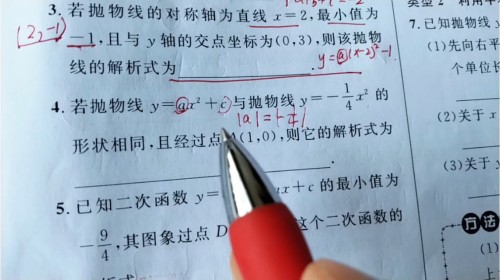 类型2 利用平
3. 若抛物线的对称轴为直线 x=2, 最小值为
(2,-1)
-1, 且与 y 轴的交点坐标为(0,3), 则该抛物
线的解析式为
y=a(x-2)²-1
4. 若抛物线 y=ax²+c 与抛物线 y=-1/4x² 的
|a|=|-1/4|
形状相同, 且经过点 (1,0), 则它的解析式为
.
5. 已知二次函数 y= ax+c 的最小值为
-9/4, 其图象过点 D 这个二次函数的
7. 已知抛物线
(1)先向右平
个单位长
(2)关于 x
(3)关于
方法
(1)